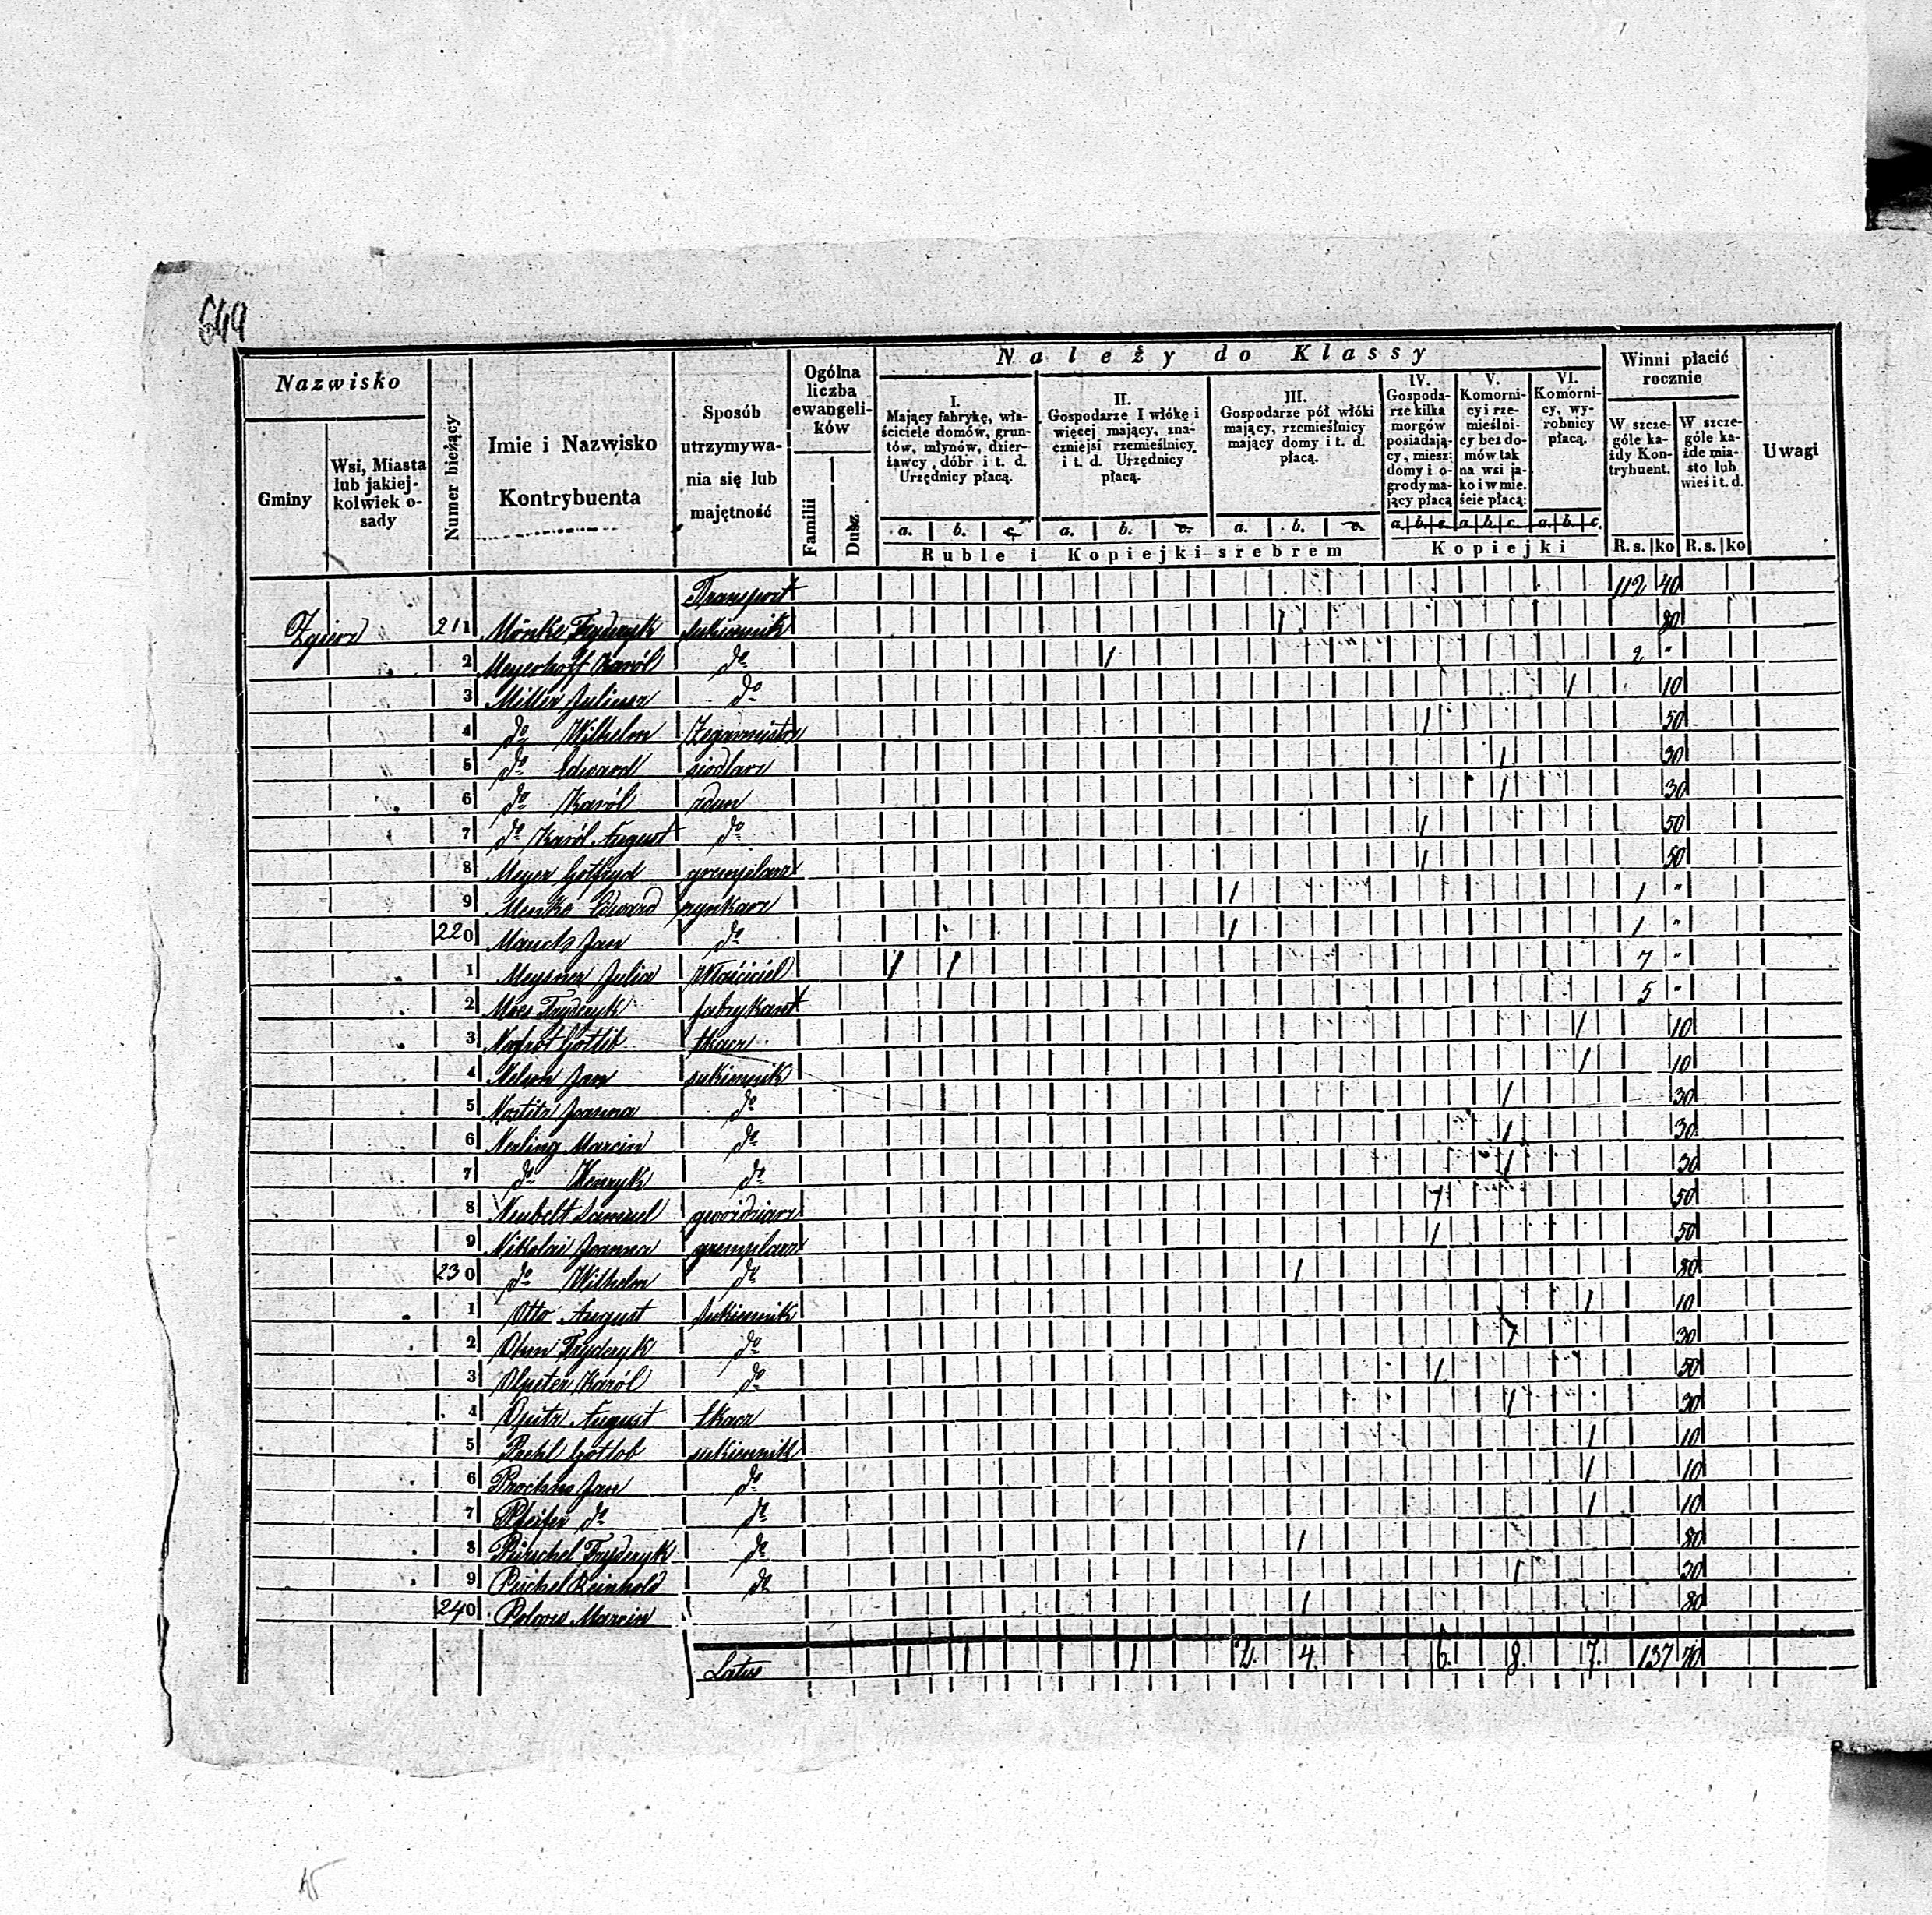 649
Nazwisko
Gminy
Wsi, Miasta lub jakiej-kolwiek o-sady
Numer bieżący
Imie i Nazwisko Kontrybuenta
Sposób utrzymywa-nia się lub majętność
Ogólna liczba ewangeli-ków
Familii
Dusz
Należy do Klassy
I. Mający fabrykę, wła-ściciele domów, grun-tów, młynów, dzier-żawcy dóbr i t. d. Urzędnicy płacą.
II. Gospodarze I włókę i więcej mający, zna-czniejsi rzemieślnicy, i t. d. Urzędnicy płacą.
III. Gospodarze pół włóki mający, rzemieślnicy mający domy i t. d. płacą.
IV. Gospoda-rze kilka morgów posiadają-cy, miesz: domy i o-grody ma-jący płacą
V. Komorni-cy i rze-mieślni-cy bez do-mów tak na wsi ja-ko i w mie-ście płacą:
VI. Komorni-cy, wy-robnicy płacą.
a. b. c. a. b. c. a. b. c. a. b. c. a. b. c. a. b. c.
Ruble i Kopiejki srebrem
Kopiejki
Winni płacić rocznie
W szcze-góle ka-żdy Kon-trybuent.
W szcze-góle ka-żde mia-sto lub wieś i t. d.
R.s. ko R.s. ko
Uwagi
Transport 112 40
Zgierz 211 Mönke Fryderyk sukiennik 1 80
2 Meyerhoff Karól do 1 2 "
3 Miller Juliusz do 1 10
4 do Wilhelm Zegarmistrz 1 50
5 do Edward siodlarz 1 30
6 do Karól zdun 1 30
7 do Karól August do 1 50
8 Meyer Gotfryd gremplarz 1 50
9 Menke Edward szynkarz 1 1 "
220 Manck Jan do 1 1 "
1 Meysner Julia właściciel 1 1 7 "
2 Moes Fryderyk fabrykant 5 "
3 Gotlib tkacz 1 10
4 Nelson Jan sukiennik 1 10
5 Nostitz Joanna do 1 30
6 Nerling Marcin do 1 30
7 do Henryk do 1 30
8 Neubelt Samuel gwoździarz 1 50
9 Nikolai Joanna gremplarz 1 50
230 do Wilhelm do 1 80
1 Otto August sukiennik 1 10
2 Fryderyk do 1 30
3 Karól do 1 50
4 Opitz August tkacz 1 30
5 Gotlob sukiennik 1 10
6 Jan do 1 10
7 Pfeifer do do 1 10
8 Fryderyk do 1 80
9 Püschel Reinhold do 1 30
240 Marcin 1 80
Latus 1 1 1 2. 4. 6. 8. 7. 137 70